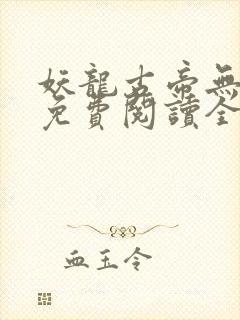 妖龍古帝無
免費閱讀全
血玉令